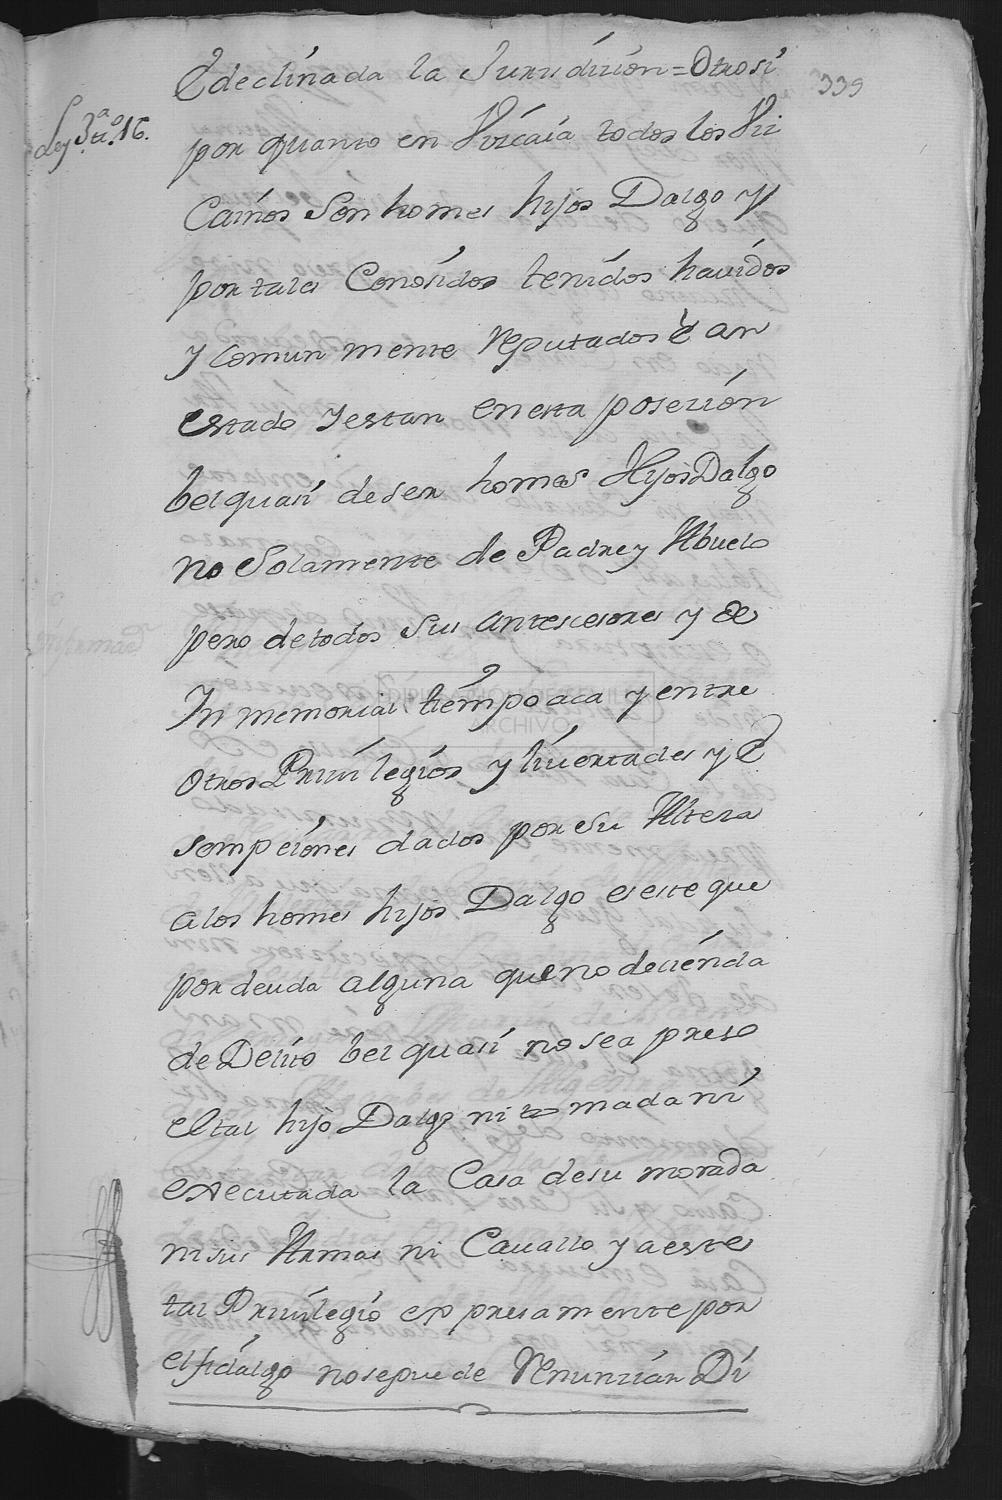 339
Ley 3ª tº. 16.
E declinada la Jurisdicion = Otrosi
por quanto en Vizcaia todos los Viz
Cainos Son homes hijos Dalgo y
por tales Conosidos tenidos havidos
y Comun mente Reputados è an
estado y estan en esta poseción
bel quasi de ser homes Hijos Dalgo
no Solamente de Padre y Abuelo
pero de todos Sus antescesores y de
In memorial tiempo aca y entre
Otros Privilegios y livertades y E
sempciones dados por Su Alteza
a los homes hijos Dalgo es este que
por deuda alguna que no decienda
de Delito bel quasi no sea preso
el tal hijo Dalgo ni tomada ni
executada la Casa de su morada
ni sus Armas ni Cauallo y a este
tal Privilegio expresamente por
el fidalgo no se puede Renunziar Di
ARCHIVO